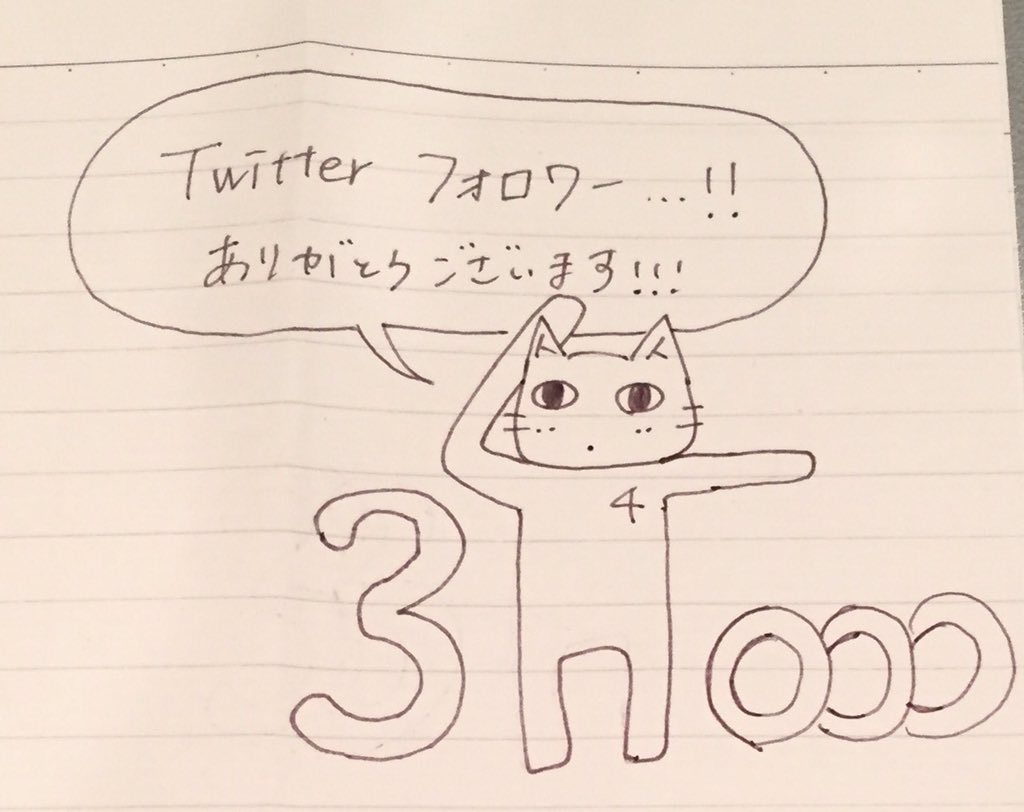 Twitter フォロワー…!!
ありがとうございます!!!
4
3 000